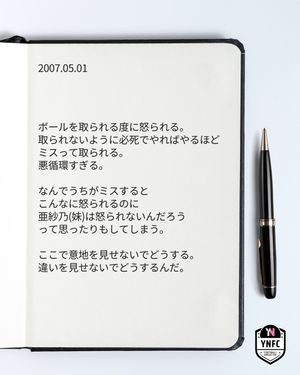 2007.05.01
ボールを取られる度に怒られる。
取られないように必死でやればやるほど
ミスって取られる。
悪循環すぎる。
なんでうちがミスすると
こんなに怒られるのに
亜紗乃(妹)は怒られないんだろう
って思ったりもしてしまう。
ここで意地を見せないでどうする。
違いを見せないでどうするんだ。
YN
YNFC